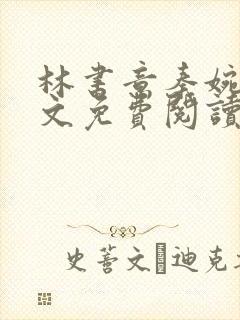 林書音秦婉
文免費閱讀
史蒂文·迪克